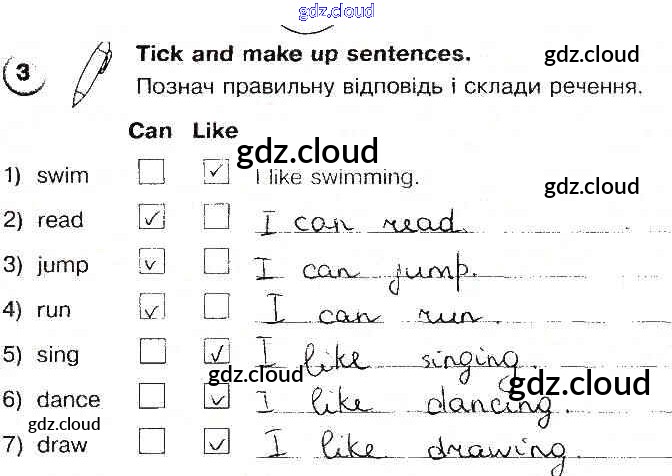 gdz.cloud
3 Tick and make up sentences. gdz.cloud
Познач правильну відповідь і склади речення.
Can Like
gdz.cloud
1) swim ✓ I like swimming. gdz.cloud
2) read ✓ I can read.
3) jump ✓ I can jump.
4) run ✓ I can run.
5) sing ✓ I like singing.
gdz.cloud gdz.cloud
6) dance ✓ I like dancing.
gdz.cloud
7) draw ✓ I like drawing.